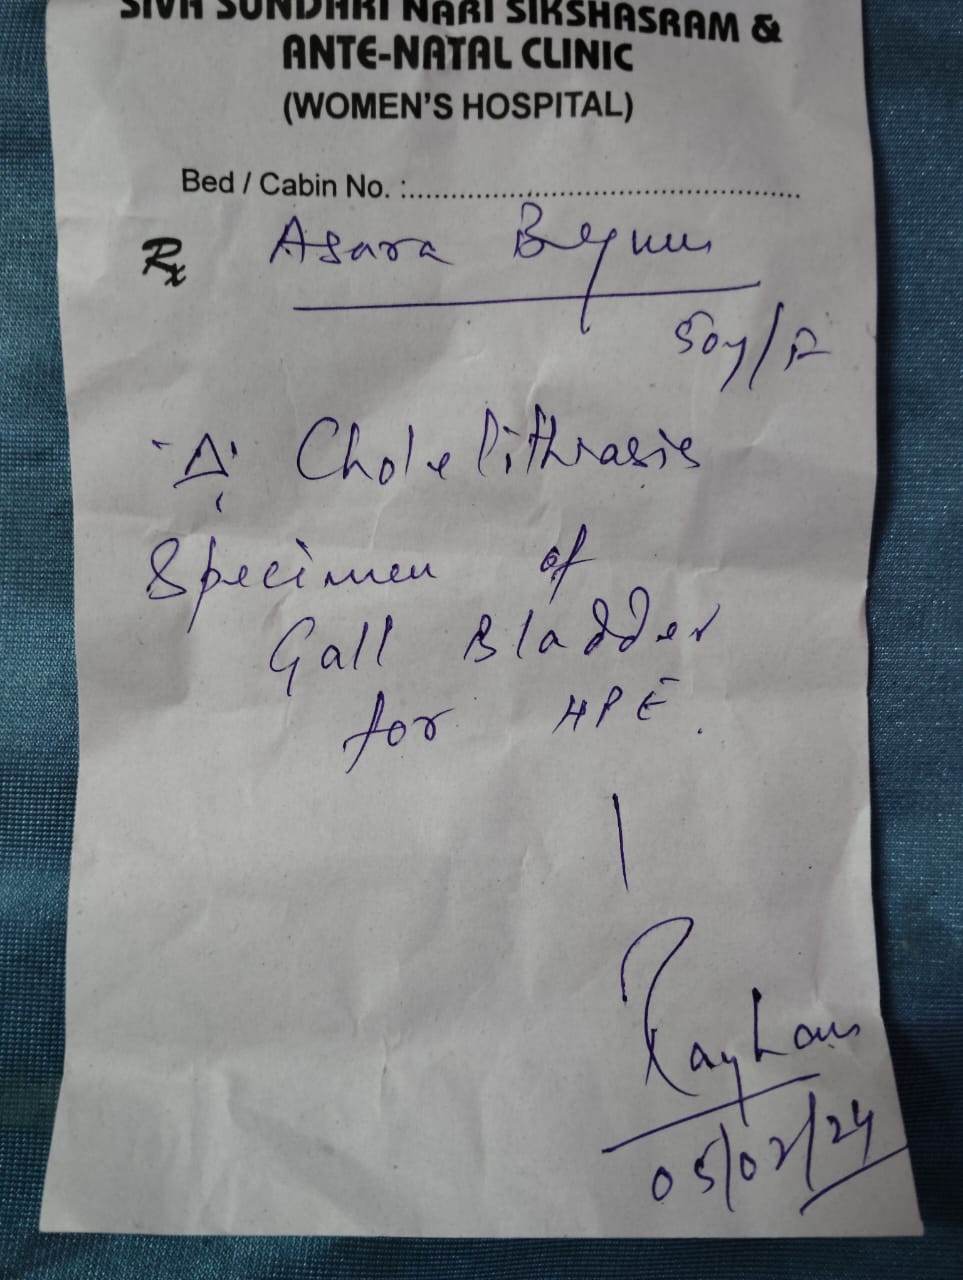 SIVA SUNDHARI NARI SIKSHASRAM &
ANTE-NATAL CLINIC
(WOMEN'S HOSPITAL)
Bed / Cabin No. :..........................................................
Rx Asara Begum
50y/F
Δ Cholelithiasis
Specimen of
Gall Bladder
for HPE.
Rayhan
05/02/24